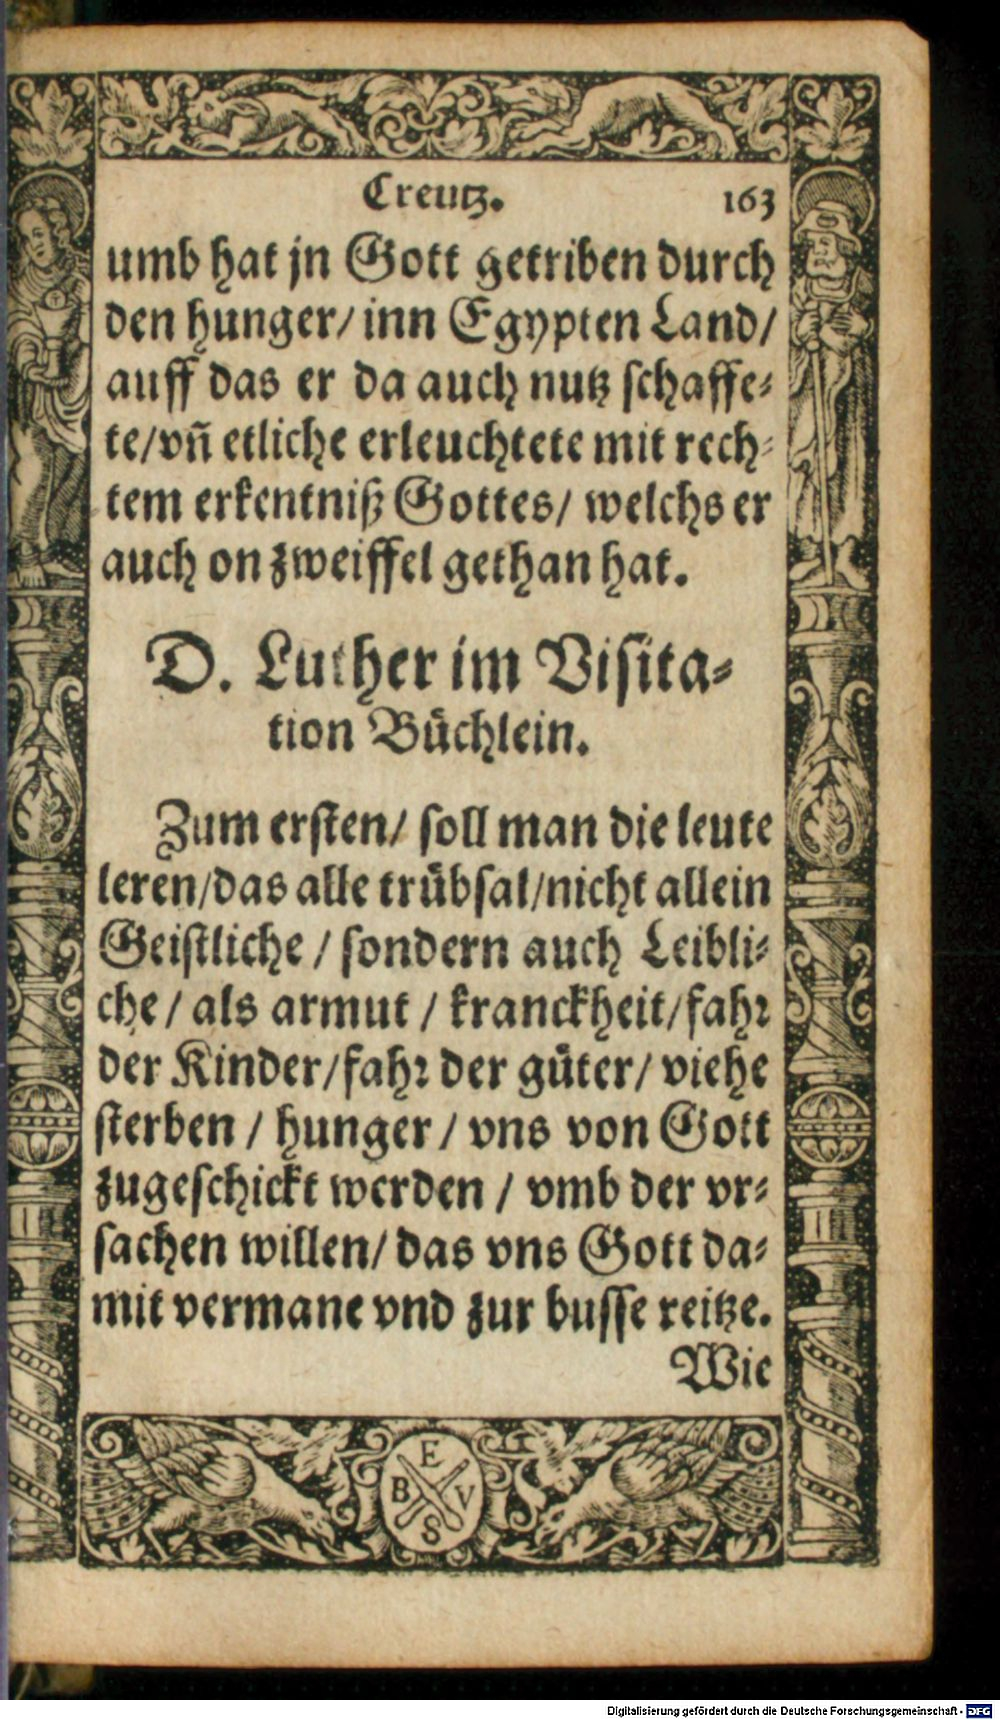 Creutz. 163
umb hat jn Gott getriben durch
den hunger/ inn Egypten Land/
auff das er da auch nutz schaffe-
te/vñ etliche erleuchtete mit rech-
tem erkentniß Gottes/ welchs er
auch on zweiffel gethan hat.
D. Luther im Visita-
tion Büchlein.
Zum ersten/ soll man die leute
leren/das alle trübsal/nicht allein
Geistliche / sondern auch Leibli-
che / als armut / kranckheit/fahr
der Kinder/fahr der güter/ viehe
sterben / hunger / vns von Gott
zugeschickt werden / vmb der vr-
sachen willen/ das vns Gott da-
mit vermane vnd zur busse reitze.
Wie
E
B V
S
Digitalisierung gefördert durch die Deutsche Forschungsgemeinschaft - DFG